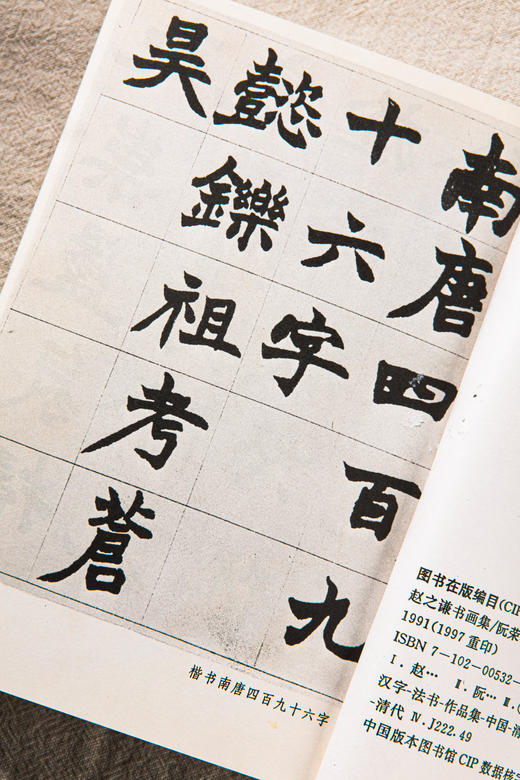 南唐四百九
十六字
懿鑠祖考蒼
昊
楷书南唐四百九十六字
图书在版编目(CIP
赵之谦书画集/阮荣
1991(1997 重印)
ISBN 7-102-00532-
Ⅰ. 赵… Ⅱ. 阮… Ⅲ.
汉字-法书-作品集-中国-清
-清代 Ⅳ. J222.49
中国版本图书馆 CIP 数据核